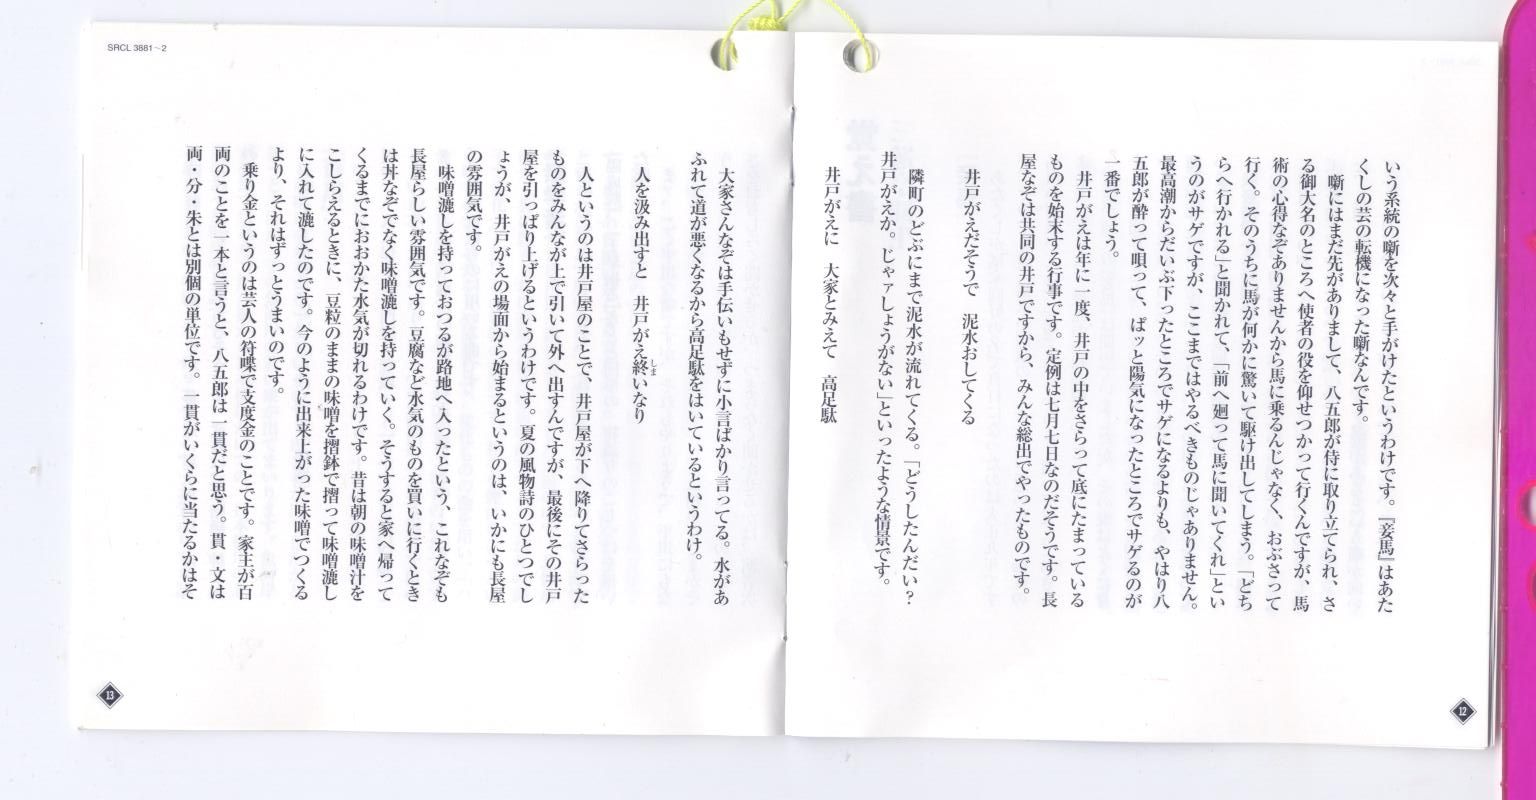 いう系統の噺を次々と手がけたというわけです。『妾馬』はあた
くしの芸の転機になった噺なんです。
噺にはまだ先がありまして、八五郎が侍に取り立てられ、さ
る御大名のところへ使者の役を仰せつかって行くんですが、馬
術の心得なぞありませんから馬に乗るんじゃなく、おぶさって
行く。そのうちに馬が何かに驚いて駆け出してしまう。「どち
らへ行かれる」と聞かれて、「前へ廻って馬に聞いてくれ」とい
うのがサゲですが、ここまではやるべきものじゃありません。
最高潮からだいぶ下ったところでサゲになるよりも、やはり八
五郎が酔って唄って、ぱッと陽気になったところでサゲるのが
一番でしょう。
井戸がえは年に一度、井戸の中をさらって底にたまっている
ものを始末する行事です。定例は七月七日なのだそうです。長
屋なぞは共同の井戸ですから、みんな総出でやったものです。
井戸がえだそうで　泥水おしてくる
隣町のどぶにまで泥水が流れてくる。「どうしたんだい？
井戸がえか。じゃァしょうがない」といったような情景です。
井戸がえに　大家とみえて　高足駄
12
SRCL 3881〜2
大家さんなぞは手伝いもせずに小言ばかり言ってる。水があ
ふれて道が悪くなるから高足駄をはいているというわけ。
人を汲み出すと　井戸がえ終いなり
しま
人というのは井戸屋のことで、井戸屋が下へ降りてさらった
ものをみんなが上で引いて外へ出すんですが、最後にその井戸
屋を引っぱり上げるというわけです。夏の風物詩のひとつでし
ょうが、井戸がえの場面から始まるというのは、いかにも長屋
の雰囲気です。
味噌漉しを持っておつるが路地へ入ったという、これなぞも
長屋らしい雰囲気です。豆腐など水気のものを買いに行くとき
は丼なぞでなく味噌漉しを持っていく。そうすると家へ帰って
くるまでにおおかた水気が切れるわけです。昔は朝の味噌汁を
こしらえるときに、豆粒のままの味噌を摺鉢で摺って味噌漉し
に入れて漉したのです。今のように出来上がった味噌でつくる
より、それはずっとうまいのです。
乗り金というのは芸人の符喋で支度金のことです。家主が百
両のことを一本と言うと、八五郎は一貫だと思う。貫・文は
両・分・朱とは別個の単位です。一貫がいくらに当たるかはそ
13